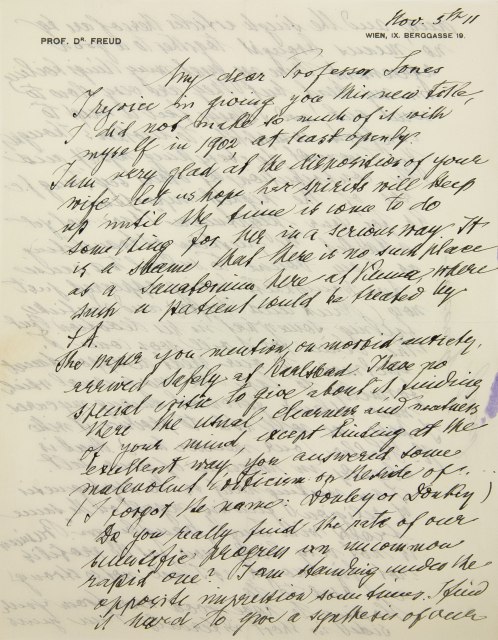 Nov. 5th 11
PROF. DR. FREUD
WIEN, IX. BERGGASSE 19.
My dear Professor Jones
I rejoice in giving you this new title,
I did not make so much of it with
myself in 1902 at least openly.
I am very glad at the disposition of your
wife let us hope her spirits will keep
up until the time is come to do
something for her in a serious way. It
is a shame that there is no such place
as a Sanatorium here at Vienna, where
such a patient could be treated by
ΨA.
The paper you mention, on morbid anxiety,
arrived safely at Karlsbad. I have no
special critic to give about it finding
there the usual clearness and neatness
of your mind, except hinting at the
excellent way, you answered some
malevolent criticism on the side of ...
(I forgot the name: Donley or Donkey)
Do you really find the rate of our
scientific progress an uncommon
rapid one? I am standing under the
opposite impression sometimes. I find
it hard to give a synthesis of our